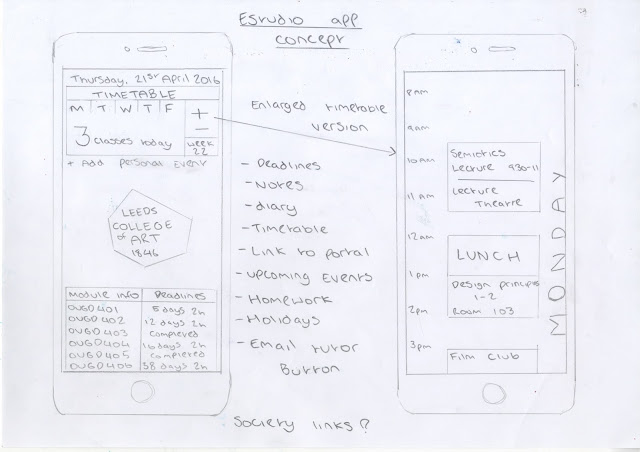 Estudio app
concept
Thursday, 21st April 2016
TIMETABLE
M T W T F
+
-
3 classes today
week
22
+ Add personal event
LEEDS
COLLEGE
of ART
1846
Module info Deadlines
OUGD401 5 days 2h
OUGD402 12 days 2h
OUGD403 completed
OUGD404 16 days 2h
OUGD405 completed
OUGD406 38 days 2h
Enlarged timetable
version
- Deadlines
- Notes
- diary
- Timetable
- Link to portal
- upcoming Events
- Homework
- Holidays
- Email tutor
Button
Society links?
8am
9am
10am
11am
12am
1pm
2pm
3pm
Semiotics
Lecture 930-11
Lecture
Theatre
LUNCH
Design principles
1-2
Room 103
Film Club
MONDAY